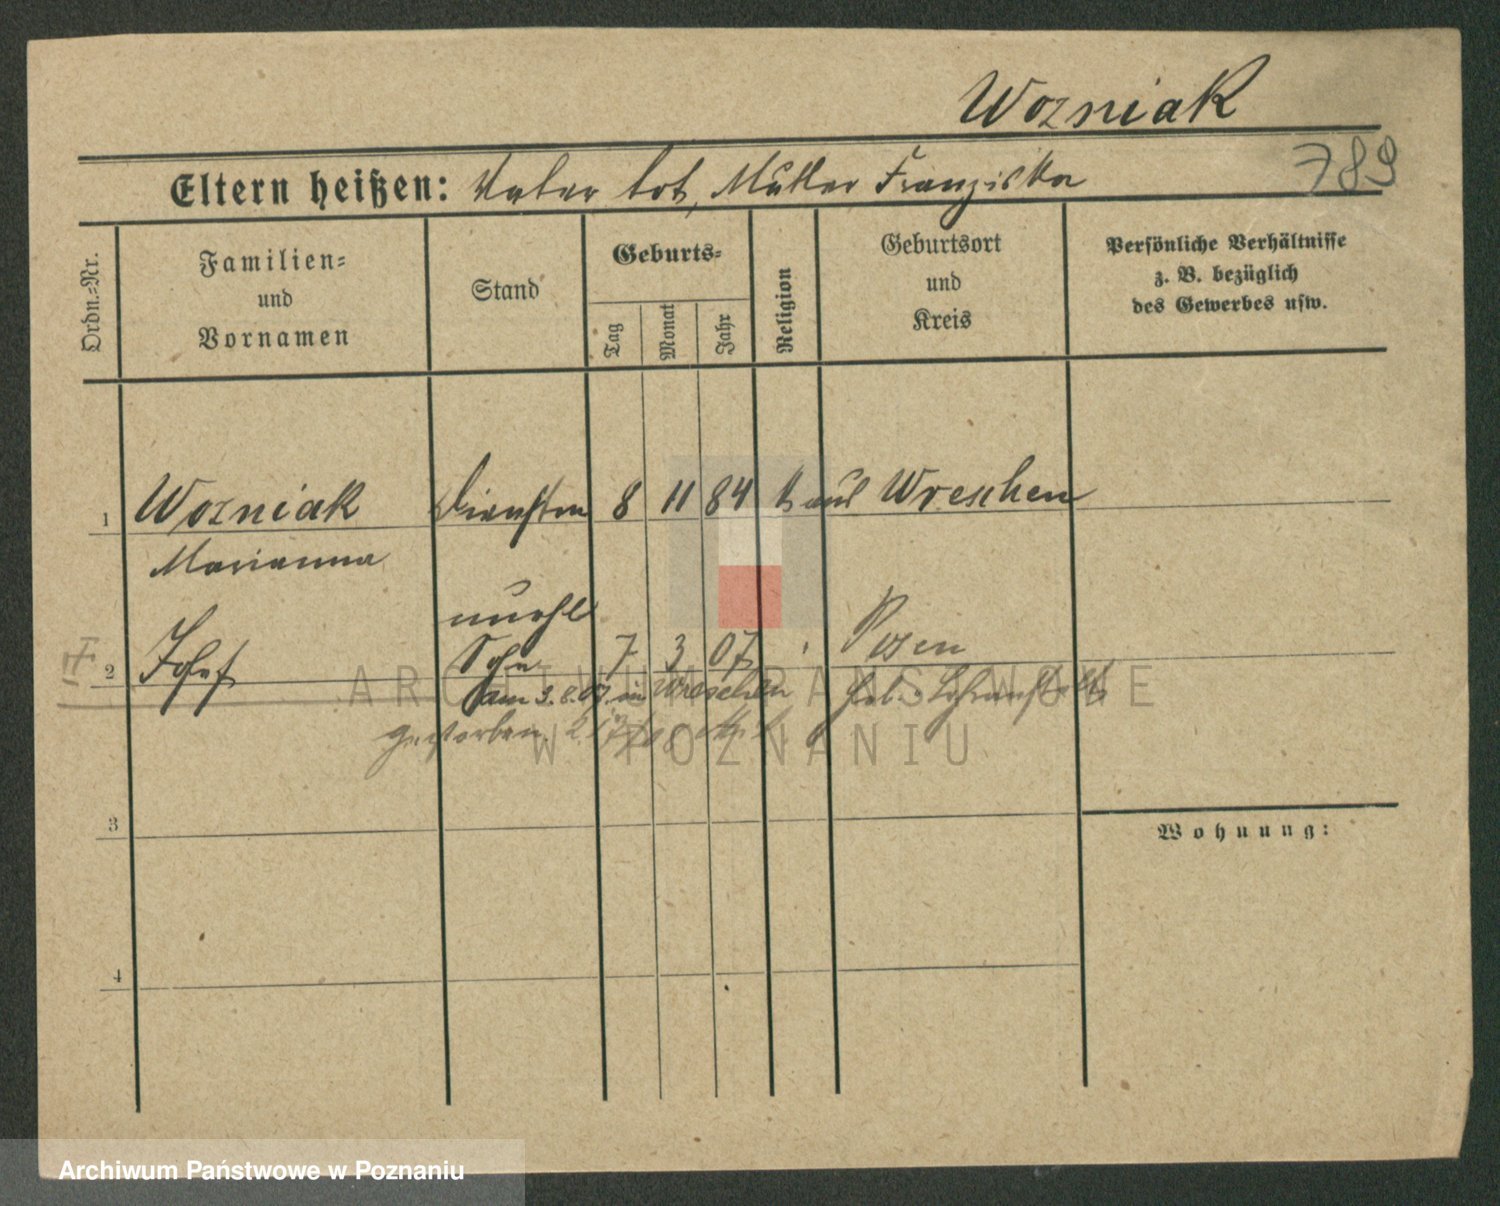 Wozniak
789
Eltern heißen: Vater tot, Mutter Franziska
Ordn.-Nr.
Familien-
und
Vornamen
Stand
Geburts-
Tag
Monat
Jahr
Religion
Geburtsort
und
Kreis
Persönliche Verhältnisse
z. B. bezüglich
des Gewerbes usw.
1 Wozniak 8 11 84 k aus Wreschen
Marianna
unehl
2 Josef Sohn 7 3 07 Posen
am 3.8.07 in Wreschen
gestorben.
3
Wohnung:
4
ARCHIWUM PAŃSTWOWE
W POZNANIU
Archiwum Państwowe w Poznaniu